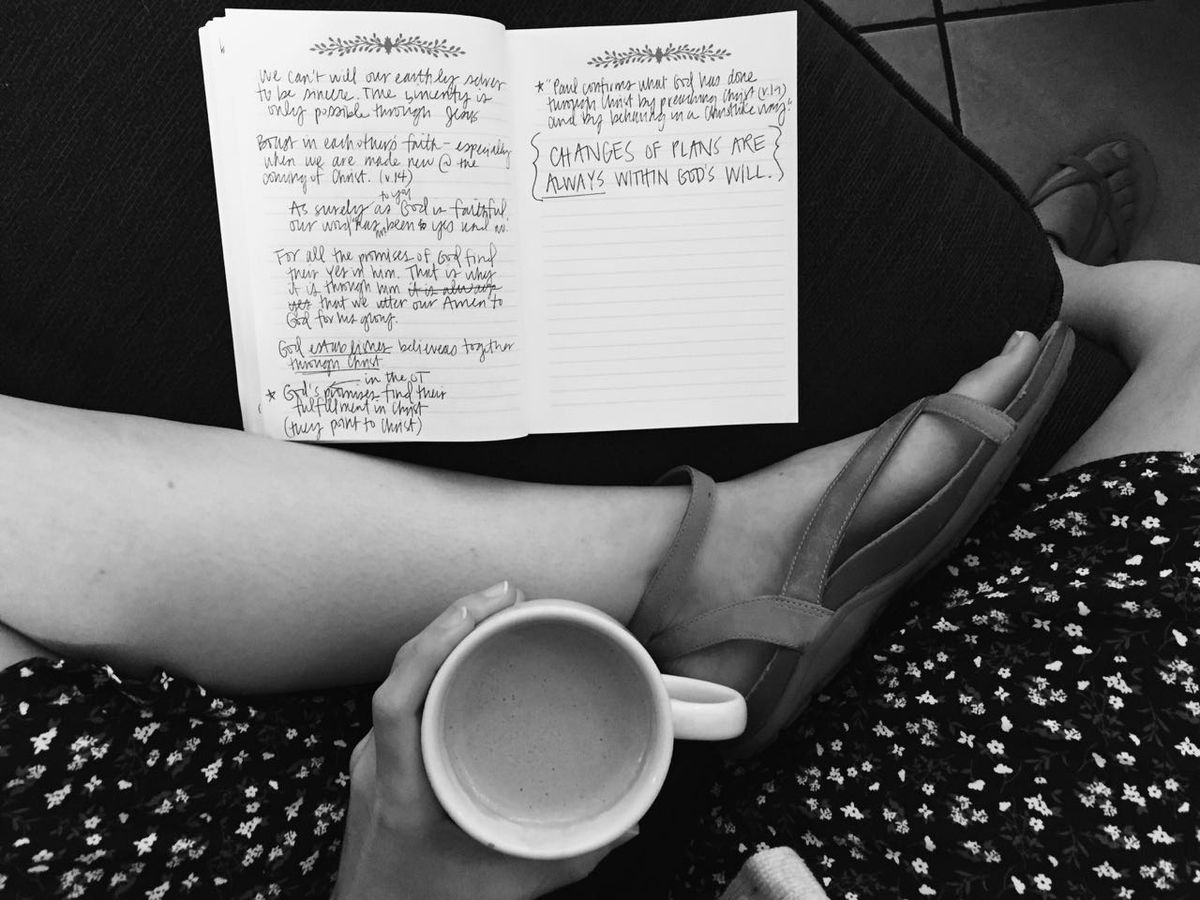 We can't will our earthly selves
to be sincere. True sincerity is
only possible through Jesus
Boast in each other's faith – especially
when we are made new @ the
coming of Christ. (v.14)
to you
As surely as God is faithful,
our word has been yes and no.
For all the promises of God find
their yes in him. That is why
it is through him it is always
yes that we utter our Amen to
God for his glory.
God establishes believers together
through Christ
in the OT
* God's promises find their
fulfillment in Christ
(they point to Christ)
* "Paul confirms what God has done
through Christ by preaching Christ (v.19)
and by behaving in a Christlike way."
{CHANGES OF PLANS ARE
ALWAYS WITHIN GOD'S WILL.}